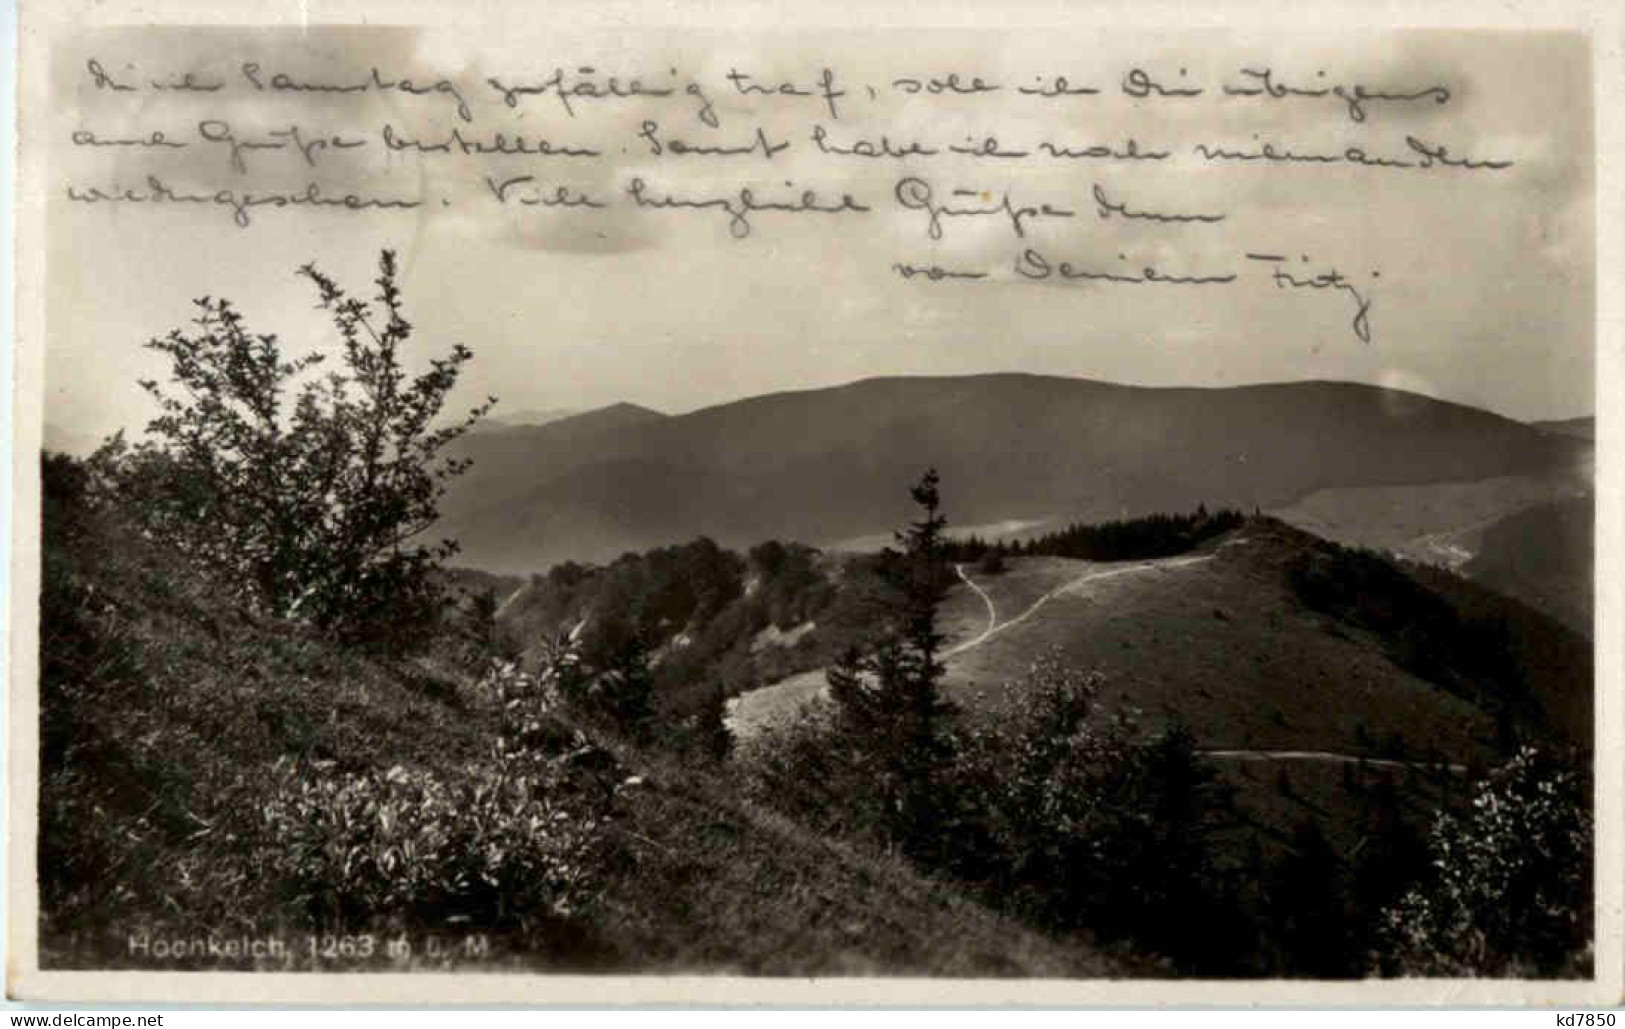 die ich Samstag zufällig traf, soll ich Dir übrigens
auch Grüße bestellen. Sonst habe ich noch niemanden
wiedergesehen. Viele herzliche Grüße denn
von Deinem Fritz.
Hochkelch, 1263 m ü. M
kd7850